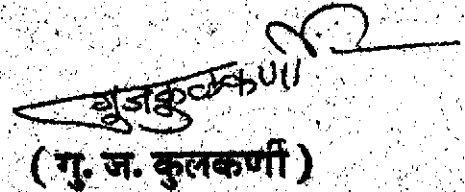 गुजकुळकर्णी
( गु. ज. कुलकर्णी )